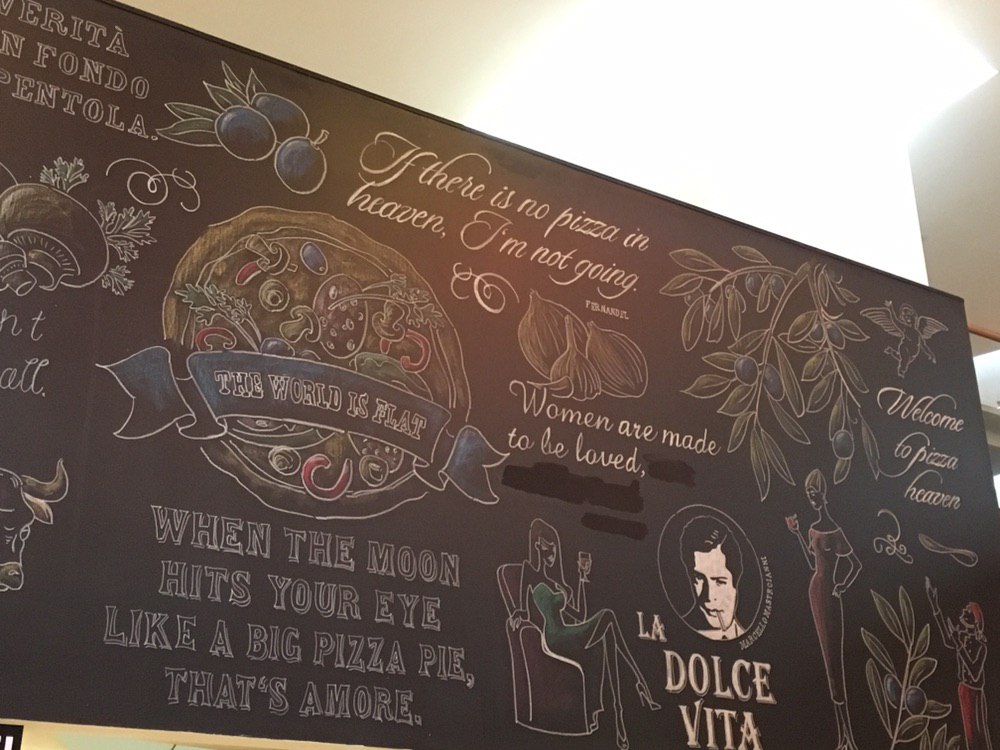 VERITÀ
N FONDO
PENTOLA.
If there is no pizza in
heaven, I'm not going.
FERNANDEL
nt
all.
THE WORLD IS FLAT
Women are made
to be loved,
Welcome
to pizza
heaven
WHEN THE MOON
HITS YOUR EYE
LIKE A BIG PIZZA PIE,
THAT'S AMORE.
MARCELLO MASTROIANNI
LA
DOLCE
VITA